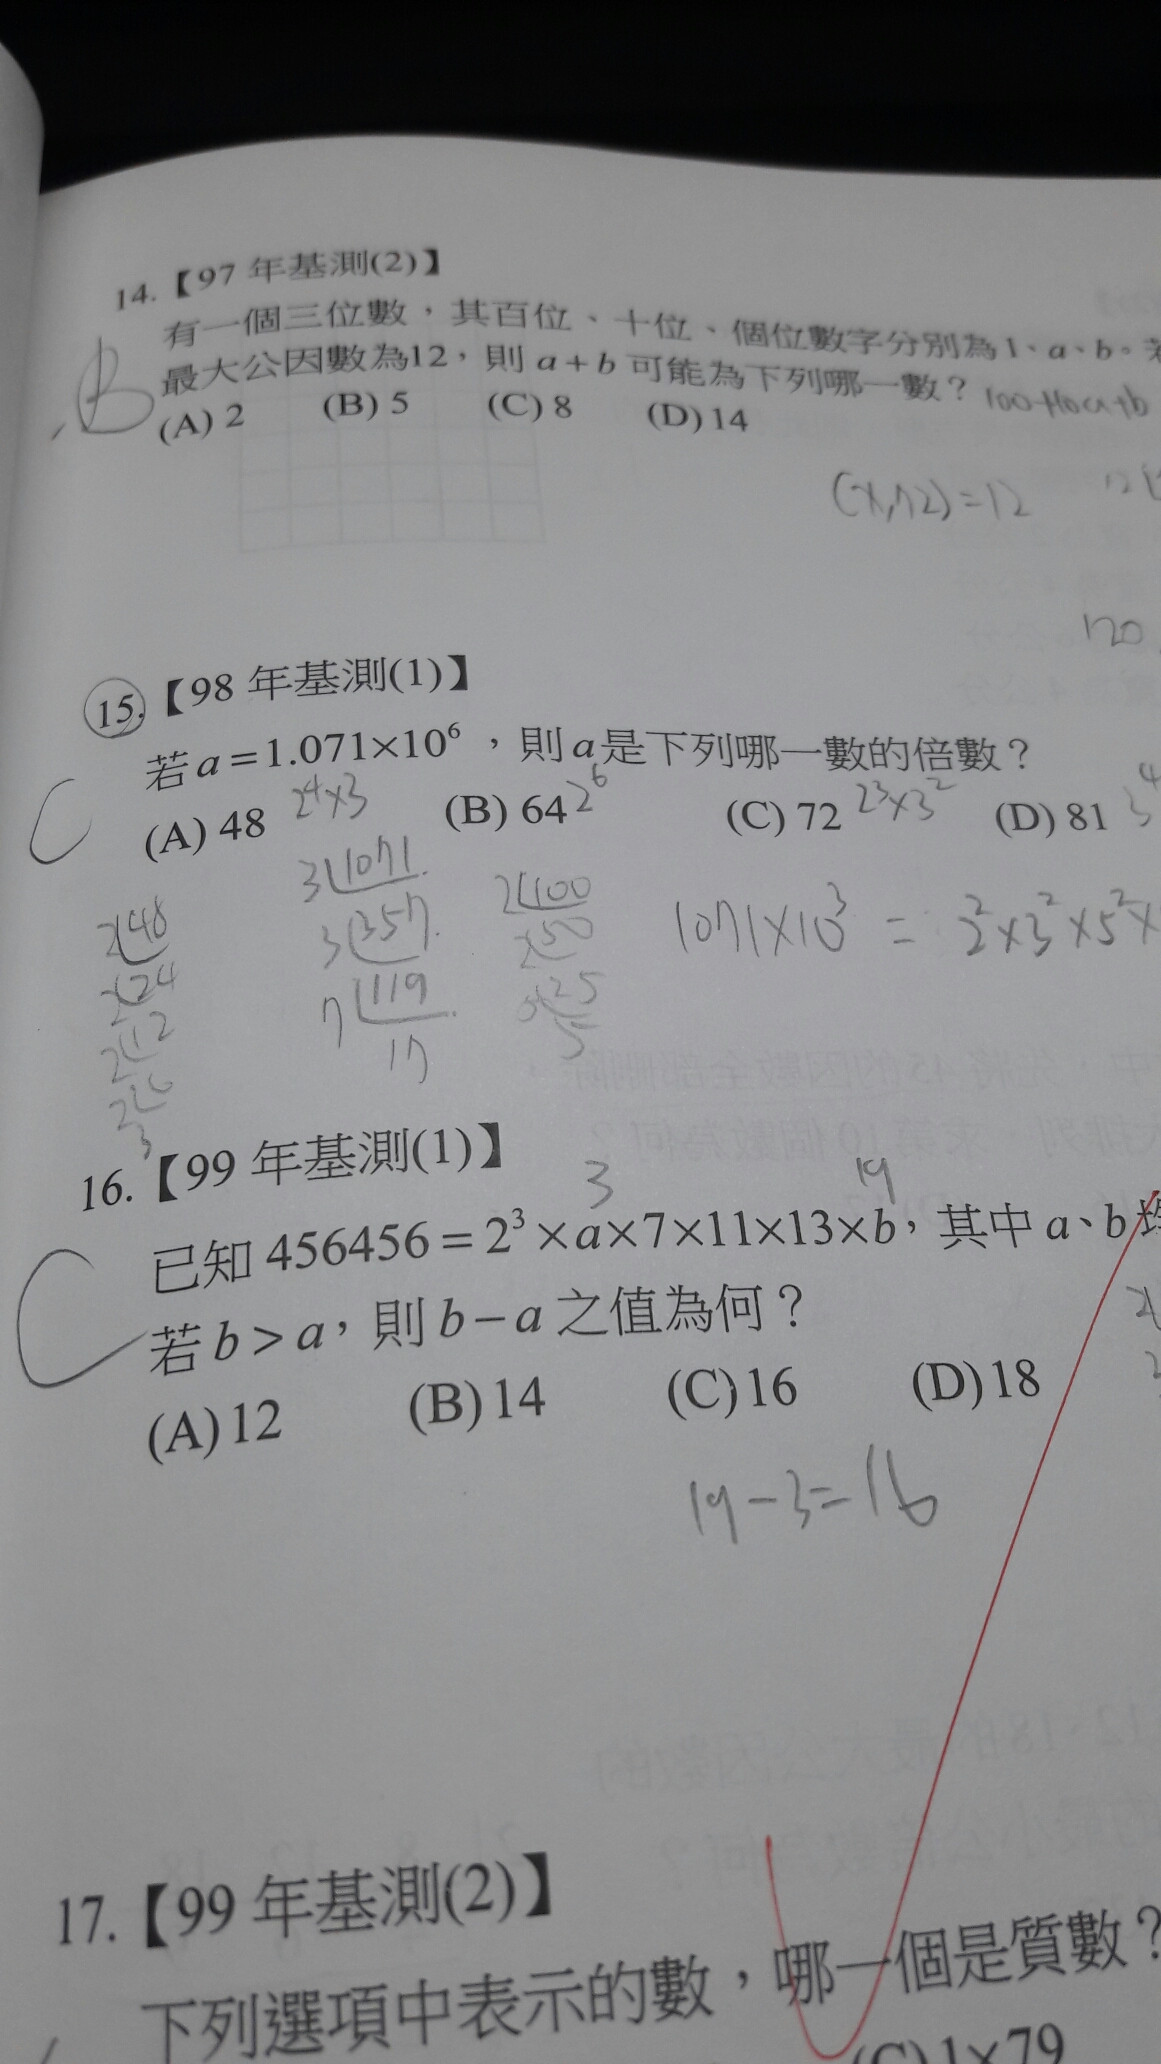 14.【97 年基測(2)】
有一個三位數，其百位、十位、個位數字分別為1、a、b。若
最大公因數為12，則 a + b 可能為下列哪一數？ 100+10a+b
B
(A) 2 (B) 5 (C) 8 (D) 14
(x,72)=12 12
120
15.【98 年基測(1)】
若 a = 1.071×10⁶ ，則 a 是下列哪一數的倍數？
C
(A) 48 2⁴×3 (B) 64 2⁶ (C) 72 2³×3² (D) 81 3⁴
3 1071
3 357
7 119
17
2 48
2 24
2 12
2 6
3
2 100
2 50
5 25
5
1071×10³ = 2²×3²×5²×
16.【99 年基測(1)】
3 19
已知 456456 = 2³ × a × 7 × 11 × 13 × b，其中 a、b 均
C
若 b > a，則 b − a 之值為何？
(A) 12 (B) 14 (C) 16 (D) 18
19－3＝16
17.【99 年基測(2)】
下列選項中表示的數，哪一個是質數？
(C) 1×79